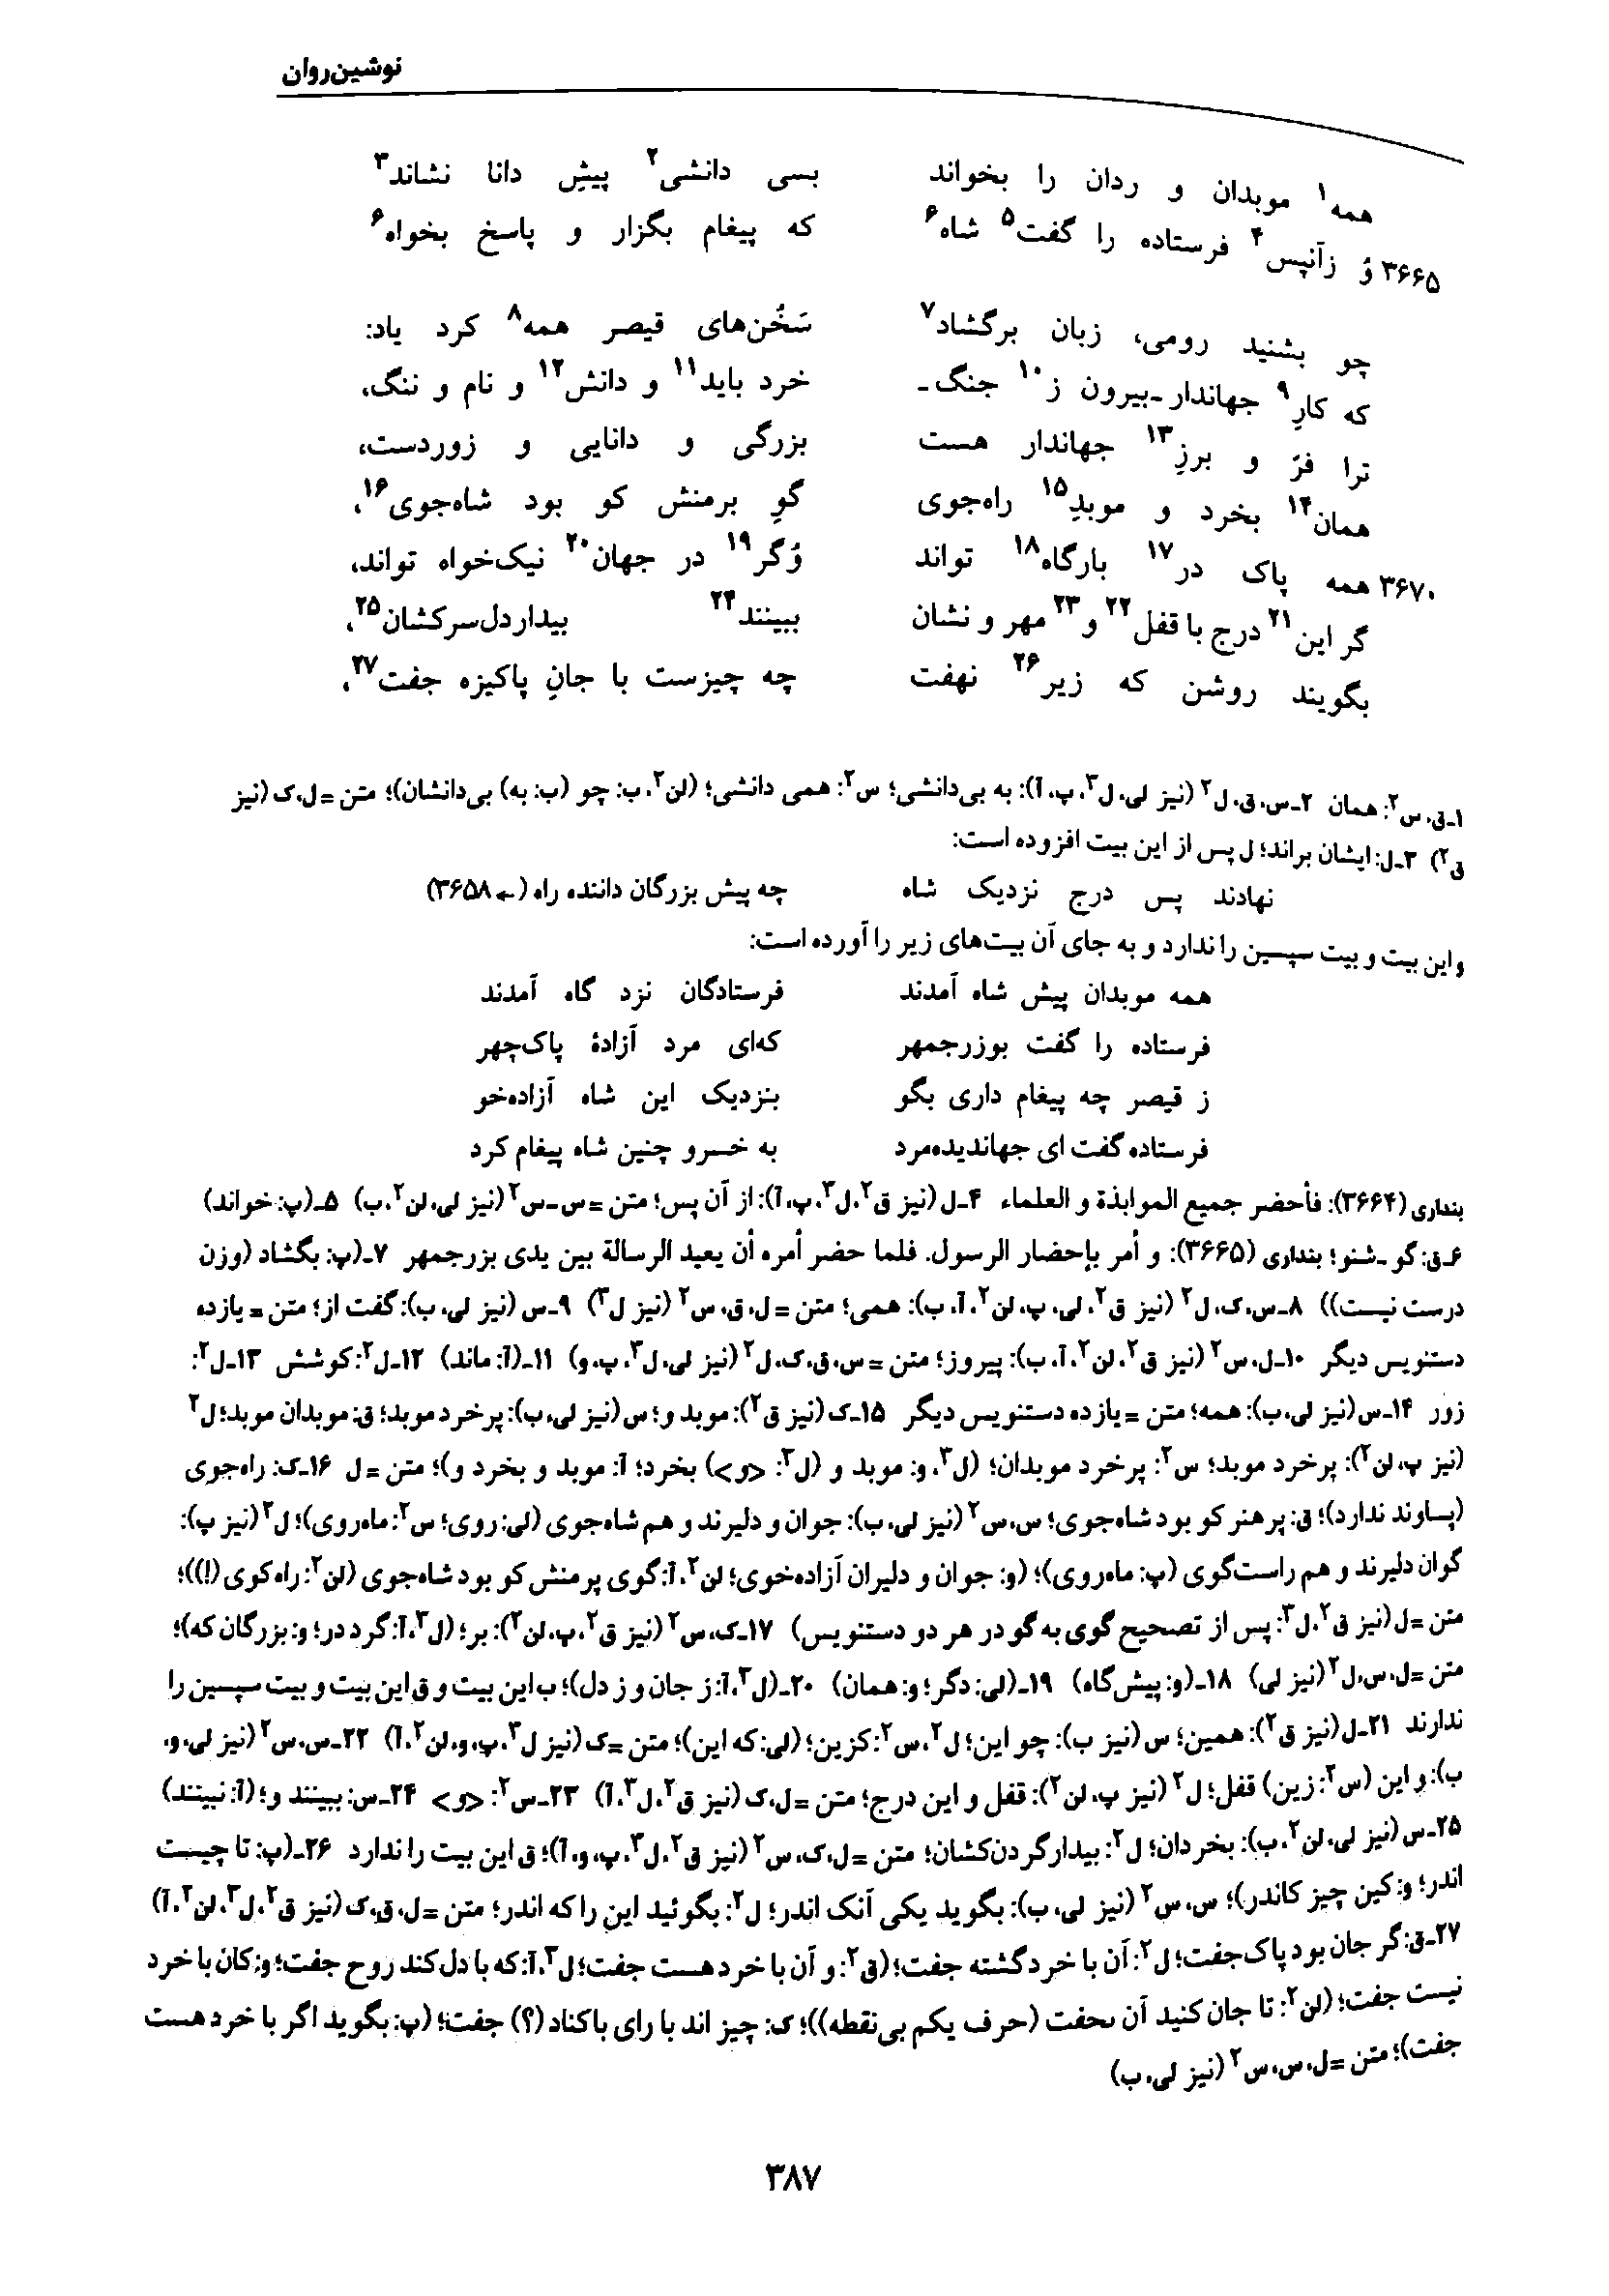 نوشین‌روان
همه۱ موبدان و ردان را بخواند بسی دانشی۲ پیشِ دانا نشاند۳
۳۶۶۵ وُ زآنپس۴ فرستاده را گفت۵ شاه۶ که پیغام بگزار و پاسخ بخواه۶
چو بشنید رومی، زبان برگشاد۷ سَخُن‌های قیصر همه۸ کرد یاد:
که کارِ۹ جهاندار ـ بیرون ز۱۰ جنگ ـ خرد باید۱۱ و دانش۱۲ و نام و ننگ،
ترا فرّ و برزِ۱۳ جهاندار هست بزرگی و دانایی و زوردست،
همان۱۴ بخرد و موبدِ۱۵ راه‌جوی گوِ برمنش کو بود شاه‌جوی۱۶،
۳۶۷۰ همه پاک در۱۷ بارگاه۱۸ تواند وُگر۱۹ در جهان۲۰ نیک‌خواه تواند،
گر این۲۱ درج با قفل۲۲ و۲۳ مهر و نشان ببینند۲۴ بیداردل‌سرکشان۲۵،
بگویند روشن که زیر۲۶ نهفت چه چیزست با جانِ پاکیزه جفت۲۷،
۱ـ ق، س۲: همان ۲ـ س، ق، ل۲ (نیز لی، ل۳، پ، آ): به بی‌دانشی؛ س۲: همی دانشی؛ (لن۲، ب: چو (ب: به) بی‌دانشان)؛ متن = ل، ک (نیز
ق۲) ۳ـ ل: ایشان براند؛ ل پس از این بیت افزوده است:
نهادند پس درج نزدیک شاه چه پیش بزرگان داننده راه (← ۳۶۵۸)
و این بیت و بیت سپسین را ندارد و به جای آن بیت‌های زیر را آورده است:
همه موبدان پیش شاه آمدند فرستادگان نزد گاه آمدند
فرستاده را گفت بوزرجمهر که‌ای مرد آزادهٔ پاک‌چهر
ز قیصر چه پیغام داری بگو بنزدیک این شاه آزاده‌خو
فرستاده گفت ای جهاندیده‌مرد به خسرو چنین شاه پیغام کرد
بنداری (۳۶۶۴): فأحضر جمیع الموابذة و العلماء ۴ـ ل (نیز ق۲، ل۳، پ، آ): از آن پس؛ متن = س ـ س۲ (نیز لی، لن۲، ب) ۵ـ (پ: خواند)
۶ـ ق: گو ـ شنو؛ بنداری (۳۶۶۵): و أمر بإحضار الرسول. فلما حضر أمره أن یعید الرسالة بین یدی بزرجمهر ۷ـ (پ: بگشاد (وزن
درست نیست)) ۸ـ س، ک، ل۲ (نیز ق۲، لی، پ، لن۲، آ، ب): همی؛ متن = ل، ق، س۲ (نیز ل۳) ۹ـ س (نیز لی، ب): گفت از؛ متن = یازده
دستنویس دیگر ۱۰ـ ل، س۲ (نیز ق۲، لن۲، آ، ب): پیروز؛ متن = س، ق، ک، ل۲ (نیز لی، ل۳، پ، و) ۱۱ـ (آ: ماند) ۱۲ـ ل۲: کوشش ۱۳ـ ل۲:
زور ۱۴ـ س (نیز لی، ب): همه؛ متن = یازده دستنویس دیگر ۱۵ـ ک (نیز ق۲): موبد و؛ س (نیز لی، ب): پرخرد موبد؛ ق: موبدان موبد؛ ل۲
(نیز پ، لن۲): پرخرد موبد؛ س۲: پرخرد موبدان؛ (ل۳، و: موبد و (ل۳: <و>) بخرد؛ آ: موبد و بخرد و)؛ متن = ل ۱۶ـ ک: راه‌جوی
(پساوند ندارد)؛ ق: پرهنر کو بود شاه‌جوی؛ س، س۲ (نیز لی، ب): جوان و دلیرند و هم شاه‌جوی (لی: روی؛ س۲: ماه‌روی)؛ ل۲ (نیز پ):
گوان دلیرند و هم راست‌گوی (پ: ماه‌روی)؛ (و: جوان و دلیران آزاده‌خوی؛ لن۲، آ: گوی پرمنش کو بود شاه‌جوی (لن۲: راه‌کوی (!)))؛
متن = ل (نیز ق۲، ل۳: پس از تصحیح گوی به گو در هر دو دستنویس) ۱۷ـ ک، س۲ (نیز ق۲، پ، لن۲): بر؛ (ل۳، آ: گرد در؛ و: بزرگان که)؛
متن = ل، س، ل۲ (نیز لی) ۱۸ـ (و: پیش‌گاه) ۱۹ـ (لی: دگر؛ و: همان) ۲۰ـ (ل۳، آ: ز جان و ز دل)؛ ب این بیت و ق این بیت و بیت سپسین را
ندارند ۲۱ـ ل (نیز ق۲): همین؛ س (نیز ب): چو این؛ ل۲، س۲: کزین؛ (لی: که این)؛ متن = ک (نیز ل۳، پ، و، لن۲، آ) ۲۲ـ س، س۲ (نیز لی، و،
ب): و این (س۲: زین) قفل؛ ل۲ (نیز پ، لن۲): قفل و این درج؛ متن = ل، ک (نیز ق۲، ل۳، آ) ۲۳ـ س۲: <و> ۲۴ـ س: ببینند و؛ (آ: نبینند)
۲۵ـ س (نیز لی، لن۲، ب): بخردان؛ ل۲: بیدار گردن‌کشان؛ متن = ل، ک، س۲ (نیز ق۲، ل۳، پ، و، آ)؛ ق این بیت را ندارد ۲۶ـ (پ: تا چیست
اندر؛ و: کین چیز کاندر)؛ س، س۲ (نیز لی، ب): بگوید یکی آنک اندر؛ ل۲: بگوئید این را که اندر؛ متن = ل، ق، ک (نیز ق۲، ل۳، لن۲، آ)
۲۷ـ ق: گر جان بود پاک‌جفت؛ ل۲: آن با خرد گشته جفت؛ (ق۲: و آن با خرد هست جفت؛ ل۳، آ: که با دل کند روح جفت؛ و: کان با خرد
نیست جفت؛ (لن۲: تا جان کنید آن ٮحفت (حرف یکم بی‌نقطه))؛ ک: چیز اند با رای باکناد (؟) جفت؛ (پ: بگوید اگر با خرد هست
جفت)؛ متن = ل، س، س۲ (نیز لی، ب)
۳۸۷